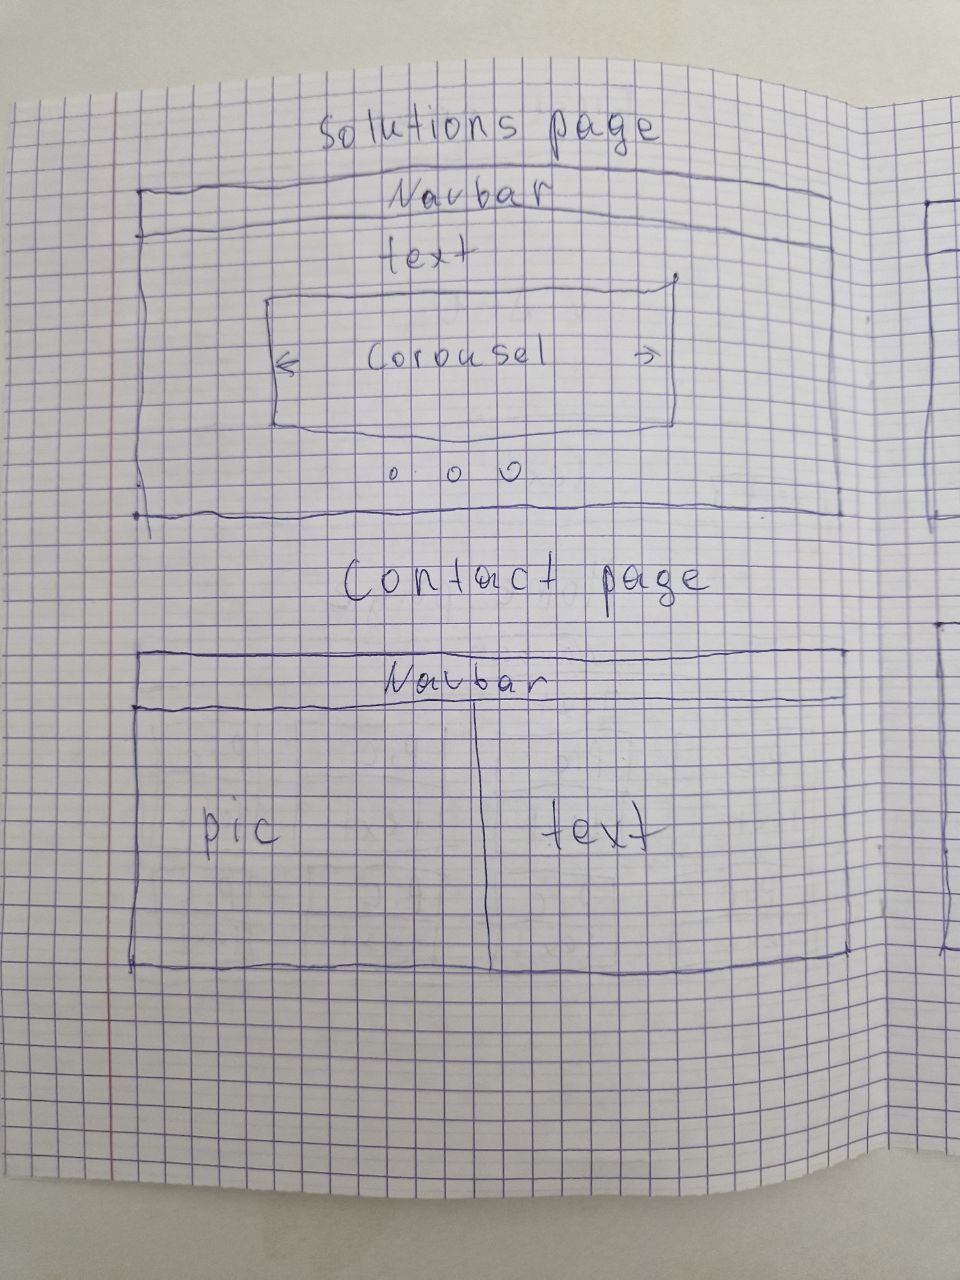 Solutions page
Navbar
text
← Corousel →
Contact page
Navbar
pic
text